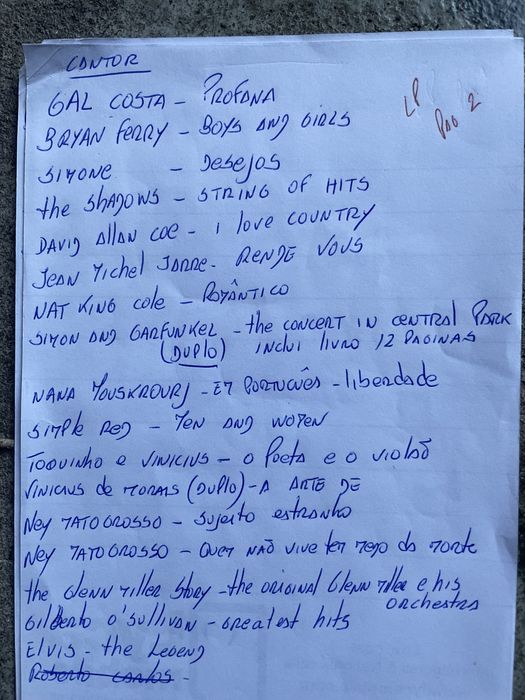 CANTOR
LP
PAG 2
GAL COSTA - PROFANA
BRYAN FERRY - BOYS AND GIRLS
SIMONE - DESEJOS
the SHADOWS - STRING OF HITS
DAVID ALLAN COE - I love COUNTRY
JEAN MICHEL JARRE - RENDE VOUS
NAT KING COLE - ROMÂNTICO
SIMON AND GARFUNKEL - the CONCERT IN CENTRAL PARK
(DUPLO) INCLUI LIVRO 12 PAGINAS
NANA MOUSKOURJ - EM PORTUGUÊS - liberdade
SIMPLE RED - MEN AND WOMEN
TOQUINHO e VINICIUS - O Poeta e o violão
VINICIUS de MORAIS (DUPLO) - A ARTE DE
Ney MATOGROSSO - Sujeito estranho
Ney MATOGROSSO - QUEM NÃO vive tem medo da morte
the Glenn Miller Story - the original Glenn Miller e his
orchestra
Gilberto O'Sullivan - greatest hits
ELVIS - the Legend
Roberto Carlos -